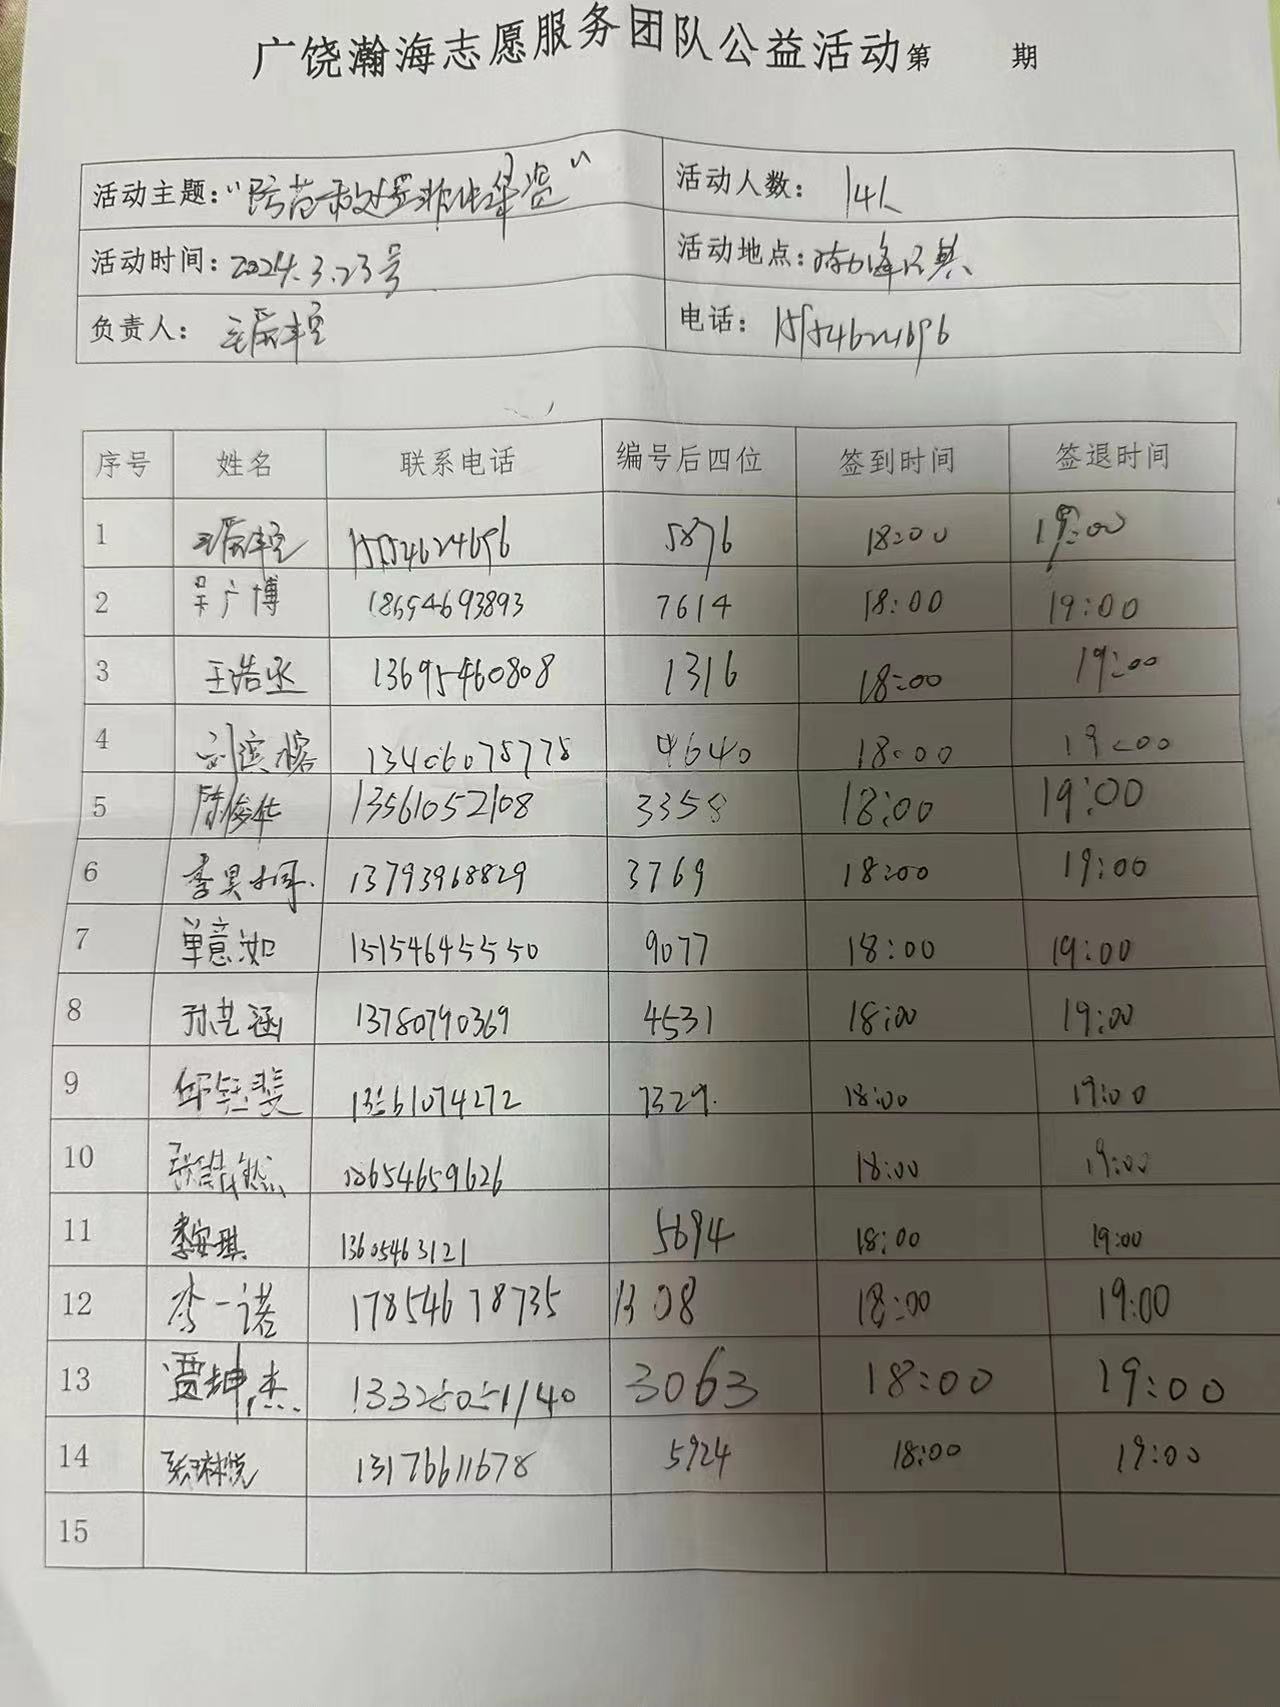 广饶瀚海志愿服务团队公益活动第 期
活动主题："防范和处置非法集资" 活动人数：14人
活动时间：2024.3.23号 活动地点：
负责人： 电话：15554624696
序号 姓名 联系电话 编号后四位 签到时间 签退时间
1 15554624696 5876 18:00 19:00
2 吴广博 18654693893 7614 18:00 19:00
3 王浩丞 13695460808 1316 18:00 19:00
4 刘滨榕 13406075775 4640 18:00 19:00
5 陈俊华 13561052108 3358 18:00 19:00
6 李昊桐 13793968829 3769 18:00 19:00
7 单意如 15154645550 9077 18:00 19:00
8 孙艺涵 13780790369 4531 18:00 19:00
9 13561074272 7329 18:00 19:00
10 18654659626 18:00 19:00
11 李安琪 13605463121 5694 18:00 19:00
12 李一诺 17854678735 1308 18:00 19:00
13 贾坤杰 13325051140 3063 18:00 19:00
14 张琳悦 13176611678 5924 18:00 19:00
15